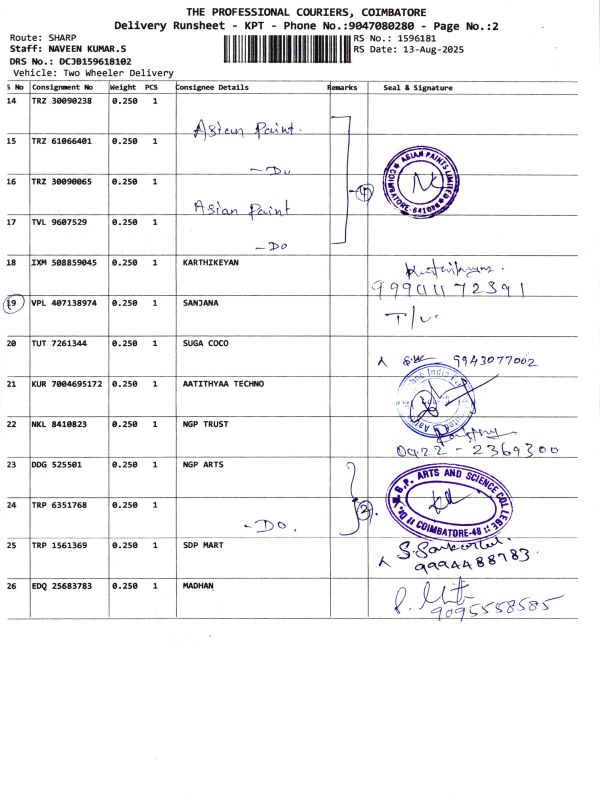 THE PROFESSIONAL COURIERS, COIMBATORE
Delivery Runsheet - KPT - Phone No.:9047080280 - Page No.:2
Route: SHARP
RS No.: 1596181
Staff: NAVEEN KUMAR.S
RS Date: 13-Aug-2025
DRS No.: DCJB159618102
Vehicle: Two Wheeler Delivery
S No Consignment No Weight PCS Consignee Details Remarks Seal & Signature
14 TRZ 30090238 0.250 1
Asian Paint.
15 TRZ 61066401 0.250 1
- Do
ASIAN PAINTS LIMITED
COIMBATORE-641
16 TRZ 30090065 0.250 1
Asian Paint
4
17 TVL 9607529 0.250 1
- Do
18 IXM 508859045 0.250 1 KARTHIKEYAN
19 VPL 407138974 0.250 1 SANJANA
T/L.
20 TUT 7261344 0.250 1 SUGA COCO
9943077002
21 KUR 7004695172 0.250 1 AATITHYAA TECHNO
22 NKL 8410823 0.250 1 NGP TRUST
0422 - 2369300
23 DDG 525501 0.250 1 NGP ARTS
Dr. N.G.P. ARTS AND SCIENCE COLLEGE
COIMBATORE-48
24 TRP 6351768 0.250 1
- Do.
25 TRP 1561369 0.250 1 SDP MART
9994488783
26 EDQ 25683783 0.250 1 MADHAN
9095558585